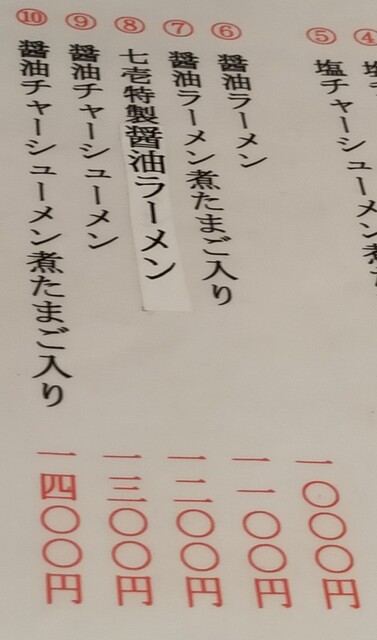 ④
塩
⑤
塩チャーシューメン煮
⑥
醤油ラーメン
⑦
醤油ラーメン煮たまご入り
⑧
七壱特製醤油ラーメン
⑨
醤油チャーシューメン
⑩
醤油チャーシューメン煮たまご入り
一〇〇〇円
一一〇〇円
一二〇〇円
一三〇〇円
一四〇〇円